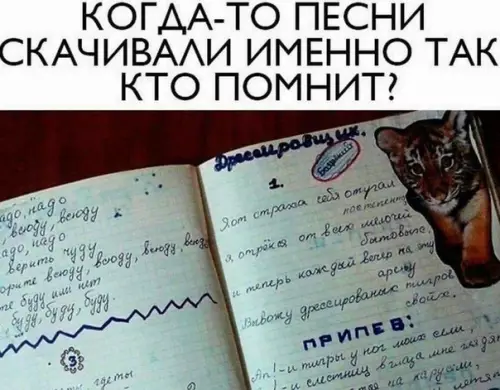 КОГДА-ТО ПЕСНИ
СКАЧИВАЛИ ИМЕННО ТАК
КТО ПОМНИТ?
надо, надо
всюду, всюду
надо, надо
верить чуду
всюду, всюду, всюду, всюду
буду или нет
буду, буду, буду.
3
где ты
Дрессировщик.
1.
Я от страха себя отучал
постепенно
я отрёкся от всех мелочей
бытовых,
и теперь каждый вечер на эту
арену
Вывожу дрессированых тигров
своих.
ПРИПЕВ:
Ап! - и тигры у ног моих сели,
Ап! - и с лестниц в глаза мне глядят